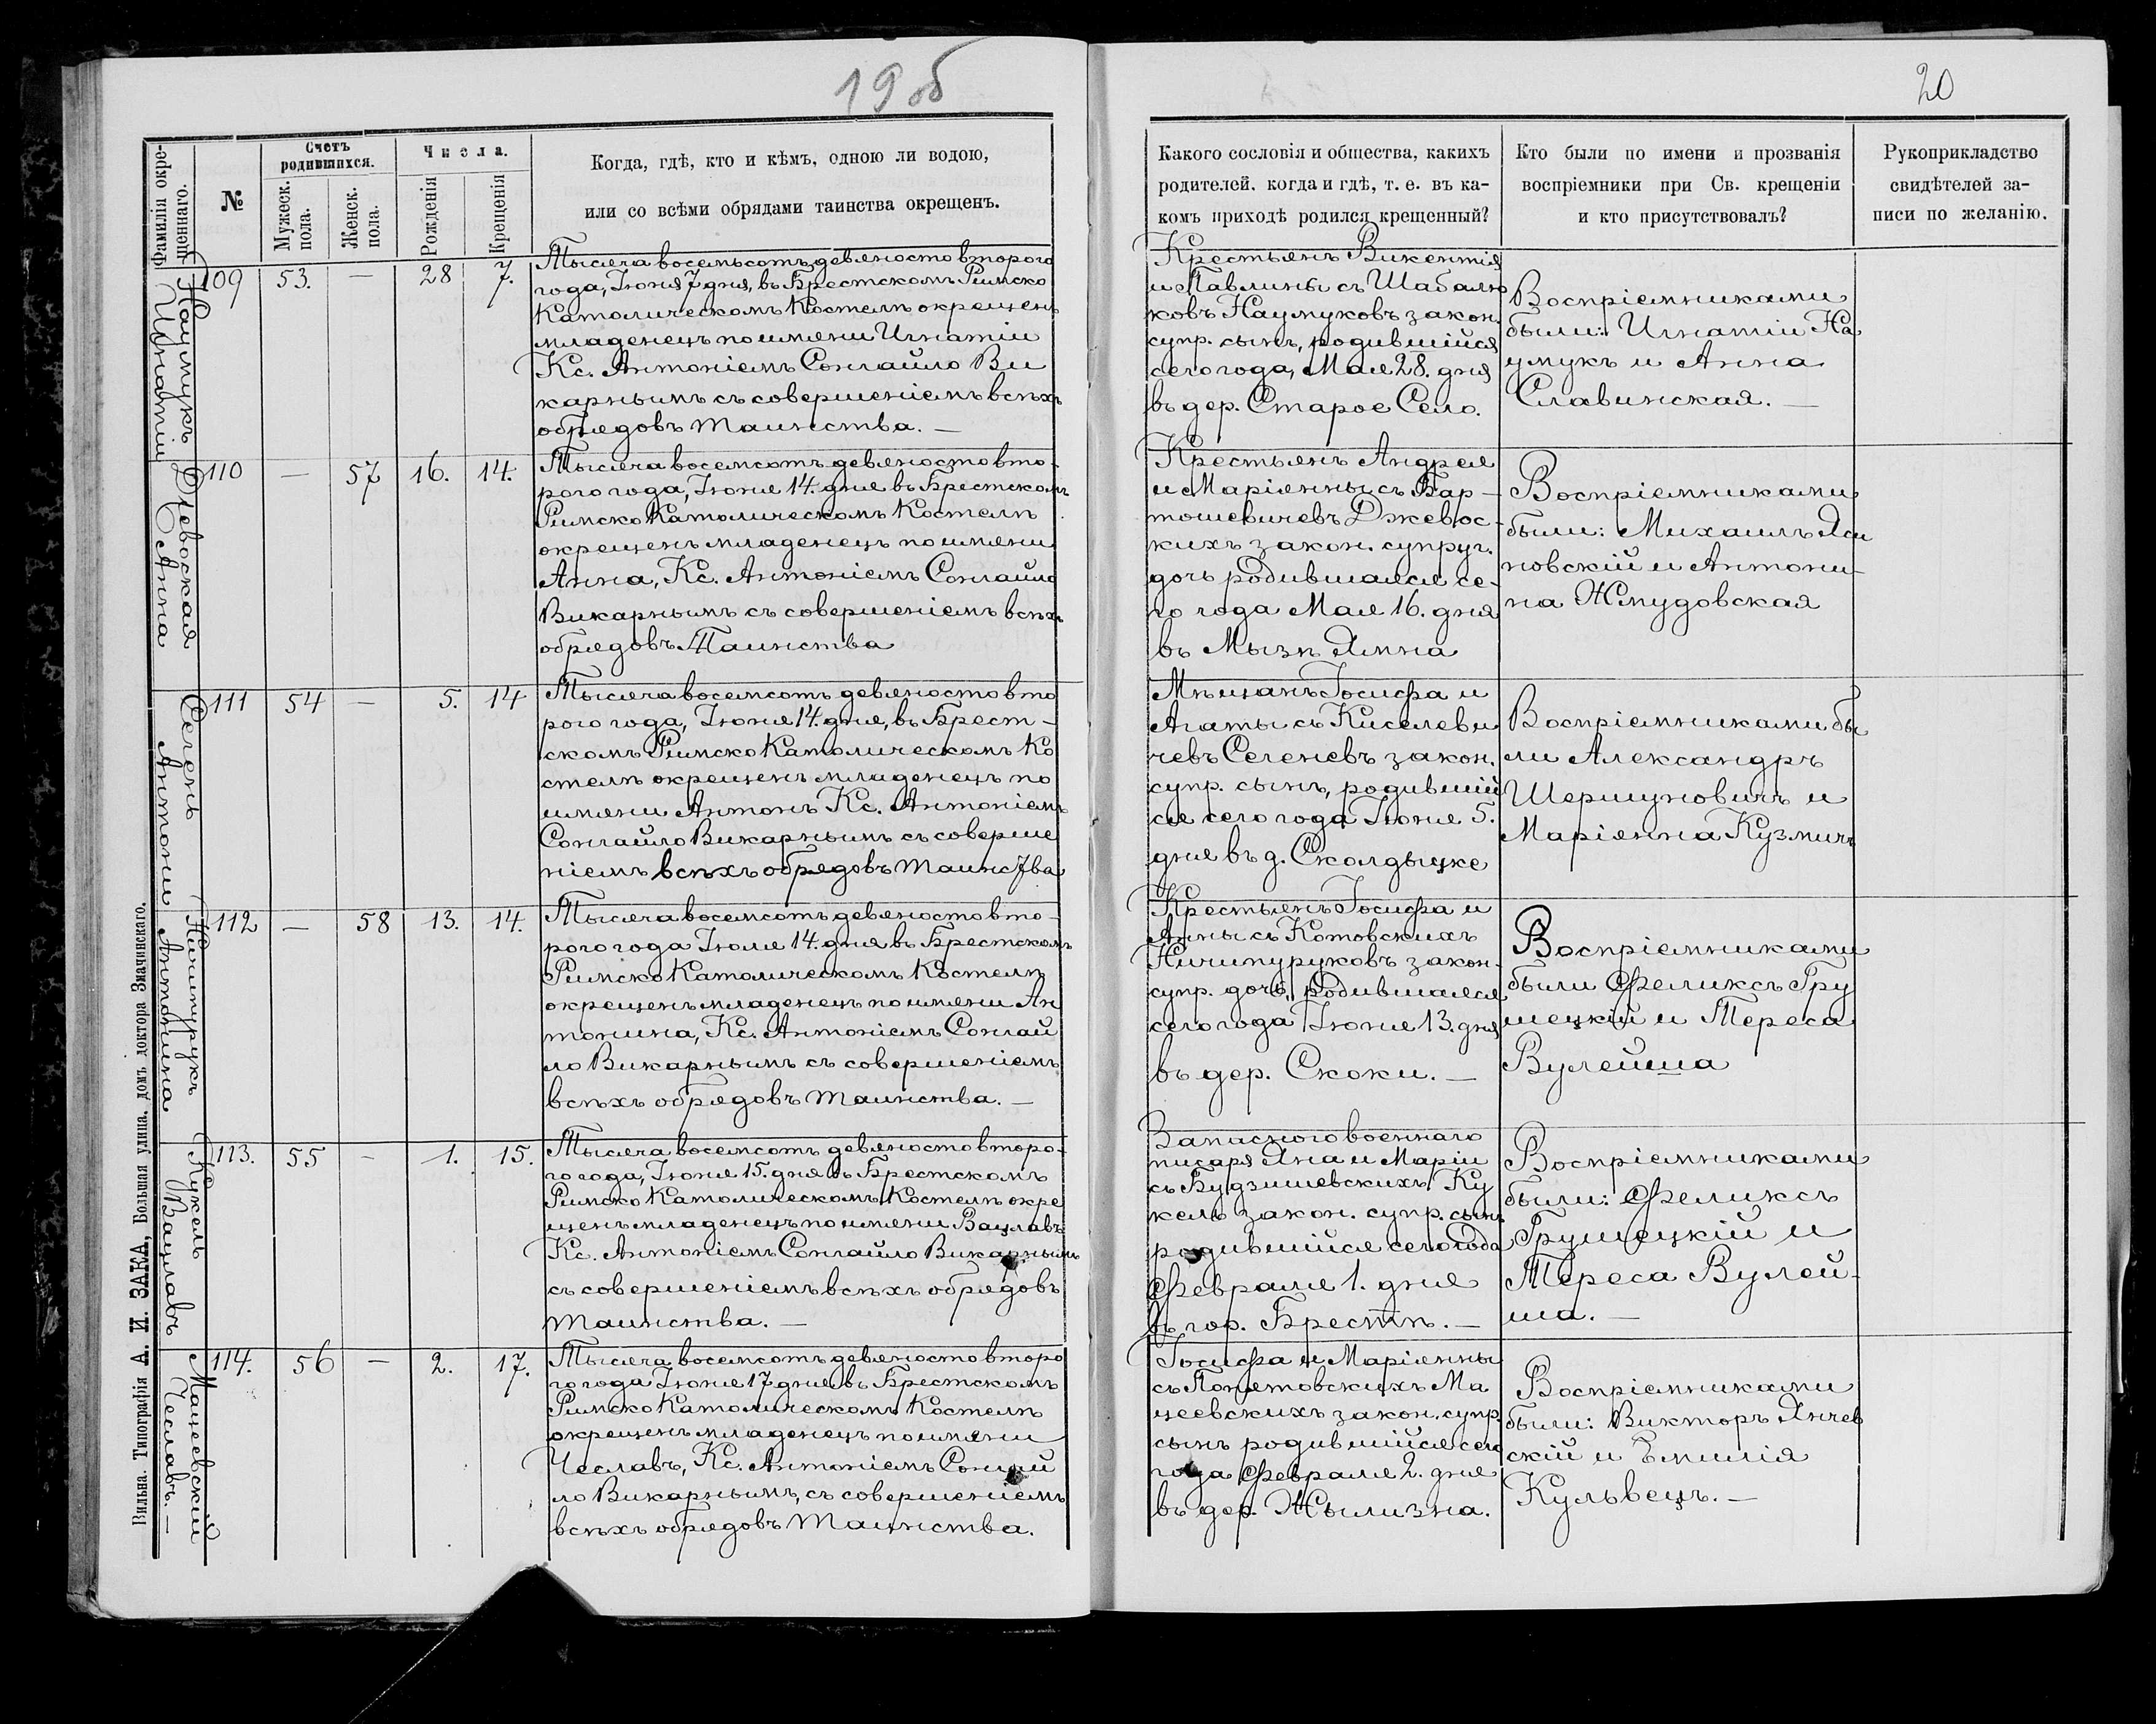 19 об
20
Фамилія окре-
щеннаго.
№
Счетъ
родившихся.
Мужеск.
пола.
Женск.
пола.
Числа.
Рожденія
Крещенія
Когда, гдѣ, кто и кѣмъ, одною ли водою,
или со всѣми обрядами таинства окрещенъ.
Какого сословія и общества, какихъ
родителей, когда и гдѣ, т. е. въ ка-
комъ приходѣ родился крещенный?
Кто были по имени и прозванія
воспріемники при Св. крещеніи
и кто присутствовалъ?
Рукоприкладство
свидѣтелей за-
писи по желанію.
Наумукъ
Игнатій
109 53. — 28 7.
Тысяча восемьсотъ девяносто второго
года, Іюня 7 дня, въ Брестскомъ Римско
Католическомъ Костелѣ окрещенъ
младенецъ по имени Игнатій
Кс. Антоніемъ Сонгайло Ви
карнымъ съ совершеніемъ всѣхъ
обрядовъ таинства. —
Крестьянъ Викентія
и Павлины съ Шабалю
ковъ Наумуковъ закон.
супр. сынъ, родившійся
сего года, Мая 28. дня
въ дер. Старое Село.
Воспріемниками
были: Игнатій На
умукъ и Анна
Славинская. —
Джевоская
Анна
110 — 57 16. 14.
Тысяча восемсотъ девяносто вто-
рого года, Іюня 14. дня въ Брестскомъ
Римско Католическомъ Костелѣ
окрещенъ младенецъ по имени
Анна, Кс. Антоніемъ Сонгайло
Викарнымъ съ совершеніемъ всѣхъ
обрядовъ Таинства
Крестьянъ Андрея
и Маріянны съ Бар-
тошевичевъ Джевос-
кихъ закон. супруг.
дочь родившаяся се-
го года Мая 16. дня
въ Мызѣ Ямна
Воспріемниками
были: Михаилъ Яси
новскій и Антони-
на Жмудовская
Сегень
Антоній
111 54 — 5. 14
Тысяча восемсотъ девяносто вто
рого года, Іюня 14. дня, въ Брест-
скомъ Римско Католическомъ Ко
стелѣ окрещенъ младенецъ по
имени Антонъ Кс. Антоніемъ
Сонгайло Викарнымъ съ соверше
ніемъ всѣхъ обрядовъ таинства
Мѣщанъ Іосифа и
Агаты съ Киселеви
чевъ Сегеневъ закон.
супр. сынъ, родившій
ся сего года Іюня 5.
дня въ д. Сколдыцке
Воспріемниками бы
ли Александръ
Шершуновичъ и
Маріянна Кузмичъ
Ничипурукъ
Антонина
112 — 58 13. 14.
Тысяча восемсотъ девяносто вто-
рого года Іюля 14. дня въ Брестскомъ
Римско Католическомъ Костелѣ
окрещенъ младенецъ по имени Ан
тонина, Кс. Антоніемъ Сонгай
ло Викарнымъ съ совершеніемъ
всѣхъ обрядовъ таинства. —
Крестьянъ Іосифа и
Анны съ Котовскихъ
Ничипуруковъ закон.
супр. дочь, родившаяся
сего года Іюня 13. дня
въ дер. Скоки. —
Воспріемниками
были Феликсъ Гру
шецкій и Тереса
Вулейша
Кукель
Вацлавъ
113. 55 - 1. 15.
Тысяча восемсотъ девяносто второ-
го года, Іюня 15. дня въ Брестскомъ
Римско Католическомъ Костелѣ окре
щенъ младенецъ по имени Вацлавъ
Кс. Антоніемъ Сонгайло Викарнымъ
съ совершеніемъ всѣхъ обрядовъ
таинства. —
Запаснаго военнаго
писаря Яна и Маріи
съ Будзишевскихъ Ку
кель закон. супр. сынъ
родившійся сего года
Февраля 1. дня
въ гор. Брестѣ. —
Воспріемниками
были: Феликсъ
Грушецкій и
Тереса Вулей-
ша. —
Мацеевскій
Чеславъ. —
114. 56 — 2. 17.
Тысяча восемсотъ девяносто второ
го года Іюня 17 дня въ Брестскомъ
Римско Католическомъ Костелѣ
окрещенъ младенецъ по имени
Чеславъ, Кс. Антоніемъ Сонгай
ло Викарнымъ, съ совершеніемъ
всѣхъ обрядовъ таинства.
Іосифа и Маріянны
съ Понятовскихъ Ма
цеевскихъ закон. супр.
сынъ родившійся сего
года Февраля 2. дня
въ дер. Жылизна.
Воспріемниками
были: Викторъ Янчев
скій и Емилія
Кульвецъ. —
Вильна. Типографія А. И. ЗАКА, Большая улица, домъ доктора Значинскаго.